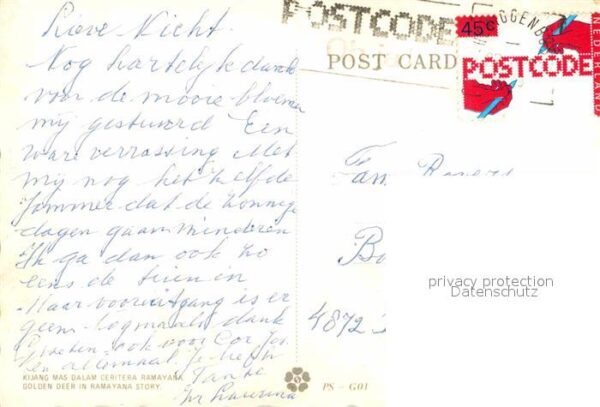 POSTCODE
45c
NEDERLAND
POSTCODE
POST CARD
Lieve Nicht.
Nog hartelijk dank
voor de mooie bloemen
mij gestuurd Een
ware verrassing Met
mij nog het zelfde
Jammer dat de zonnige
dagen gaan minderen
Ik ga dan ook zo
eens de tuin in
Maar vooruitgang is er
geen. Nogmaals dank
Groeten ook voor Cor, Jos
en allemaal. Je
Tante
Fam
4872
privacy protection
Datenschutz
KIJANG MAS DALAM CERITERA RAMAYANA
GOLDEN DEER IN RAMAYANA STORY.
PS - G01